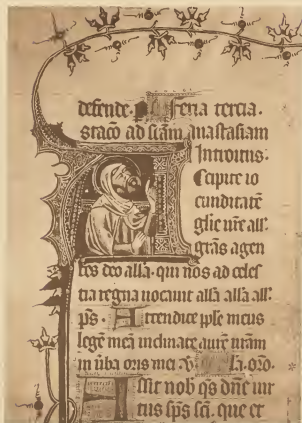 defende. Feria tercia.
stacō ad scām anastasiam
Introitus.
Accipite io
cunditatē
glīe vr̄e all'.
grās agen
tes deo allā. qui nos ad celes
tia regna uocauit allā allā all'.
p̄s. Attendite pple meus
legē meā inclinate aurē urām
in ūba oris mei. or̄o.
Assit nob qs dn̄e uir
tus sp̄s sc̄i. que et